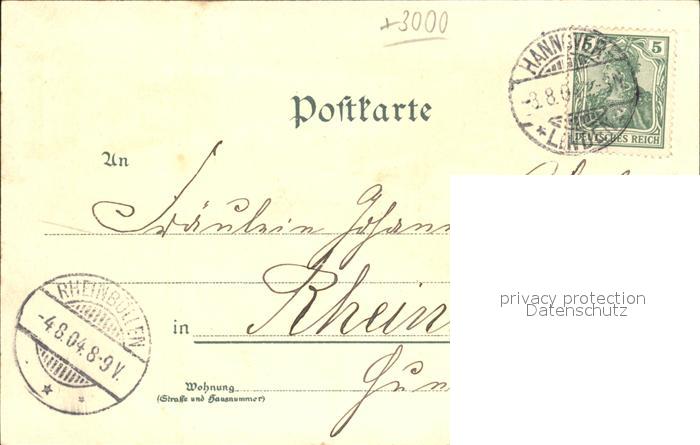 +3000
HANNOVER
5
-3.8.0
* LIN
DEUTSCHES REICH
Postkarte
An
Fräulein Johann
RHEINBÖLLEN
-4.8.04.8-9V.
* *
Rhein
in
Hun
Wohnung
(Straße und Hausnummer)
privacy protection
Datenschutz